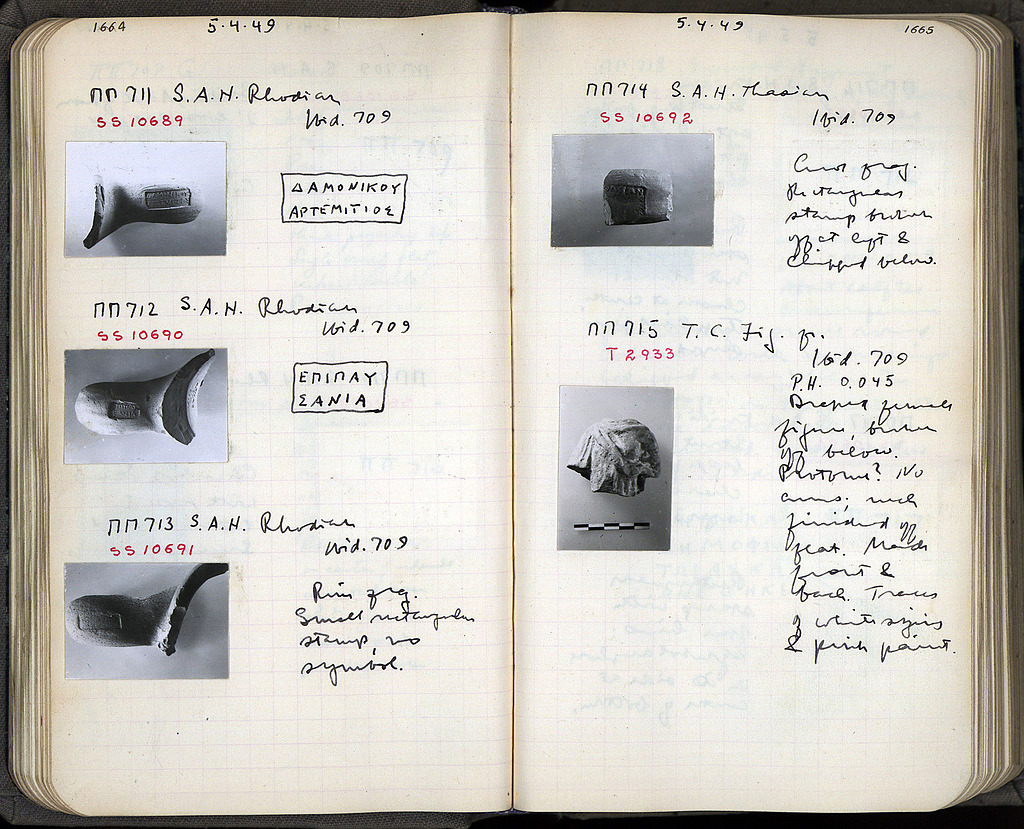 1664
5.4.49
ΠΠ 711 S.A.H. Rhodian
SS 10689
Ibid. 709
ΔΑΜΟΝΙΚΟΥ
ΑΡΤΕΜΙΤΙΟΣ
ΠΠ 712 S.A.H. Rhodian
SS 10690
Ibid. 709
ΕΠΙΠΑΥ
ΣΑΝΙΑ
ΠΠ 713 S.A.H. Rhodian
SS 10691
Ibid. 709
Rim frg.
Small rectangular
stamp, no
symbol.
5.4.49
1665
ΠΠ 714 S.A.H. Thasian
SS 10692
Ibid. 709
frag.
Rectangular
stamp broken
off at left &
chipped below.
ΠΠ 715 T.C. Fig. fr.
T 2933
Ibid. 709
P.H. 0.045
Draped female
figure, broken
off below.
Protome? No
arms; neck
finished off
flat. Made
front &
back. Traces
of white sizing
& pink paint.